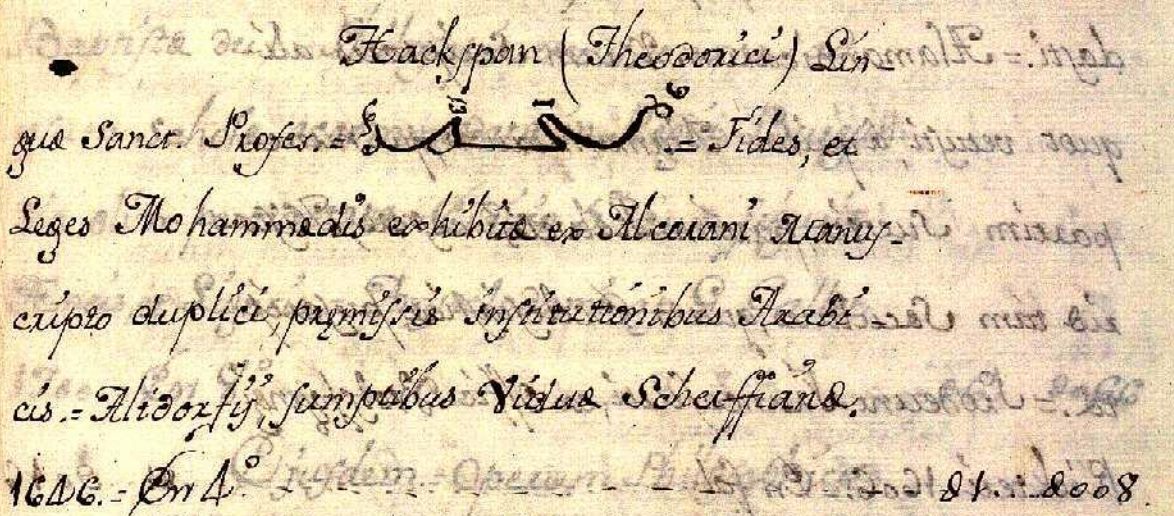 Hackspan (Theodorici) Lin-
guæ Sanct. Profes. = = Fides, et
Leges Mohammædis exhibitæ ex Alcorani Manus-
cripto duplici, pręmissis institutionibus Arabi
cis. = Altdorfij, sumptibus Viduæ Scherffianæ.
1646. = En 4.º - - - - - - - - - - 81. - 8008.